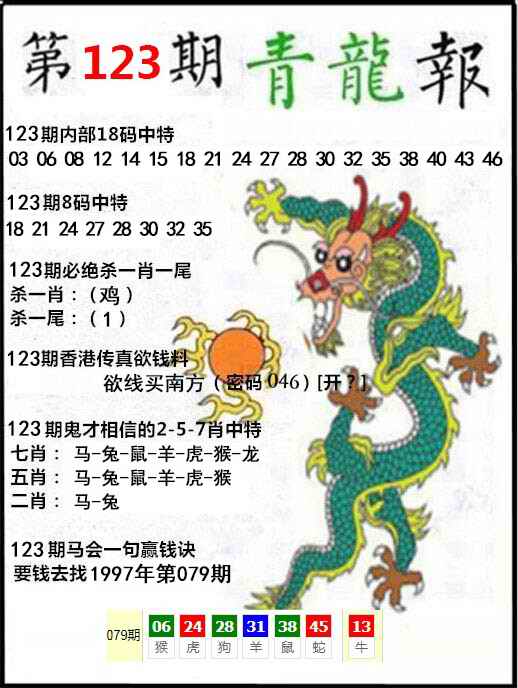 第123期青龍報
123期内部18码中特
03 06 08 12 14 15 18 21 24 27 28 30 32 35 38 40 43 46
123期8码中特
18 21 24 27 28 30 32 35
123期必绝杀一肖一尾
杀一肖：（鸡）
杀一尾：（1）
123期香港传真欲钱料
欲线买南方（密码046）[开？]
123期鬼才相信的2-5-7肖中特
七肖： 马-兔-鼠-羊-虎-猴-龙
五肖： 马-兔-鼠-羊-虎-猴
二肖： 马-兔
123期马会一句赢钱诀
要钱去找1997年第079期
079期 06 24 28 31 38 45 13
猴 虎 狗 羊 鼠 蛇 牛